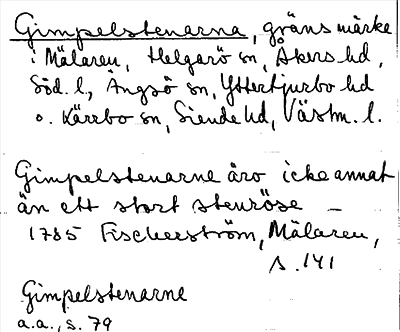 Gimpelstenarna, gränsmärke
i Mälaren, Helgarö sn, Åkers hd,
Söd. l., Ängsö sn, Yttertjurbo hd
o. Kärrbo sn, Siende hd, Västm. l.
Gimpelstenarne äro icke annat
än ett stort stenröse —
1785 Fischerström, Mälaren,
s. 141
Gimpelstenarne
a.a., s. 79